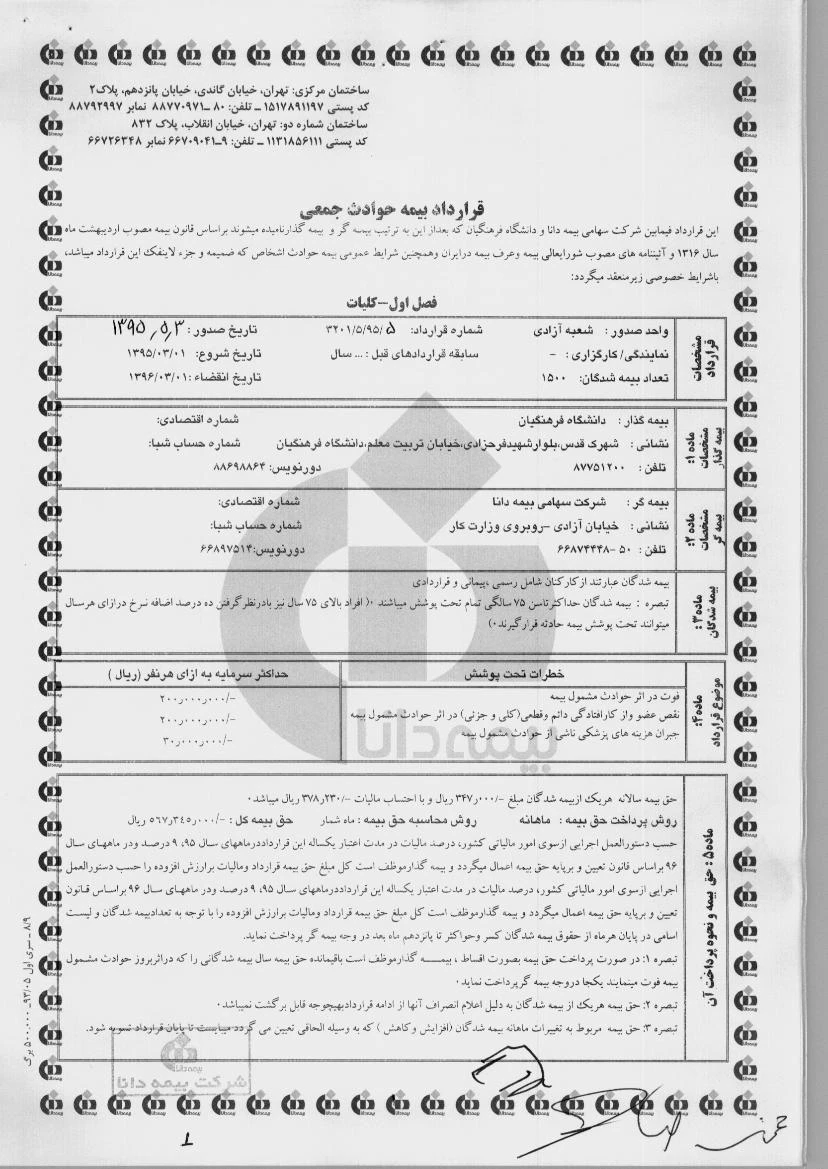 ساختمان مرکزی: تهران، خیابان گاندی، خیابان پانزدهم، پلاک۲
کد پستی ۱۵۱۷۸۹۱۱۹۷ ــ تلفن: ۸۰ ــ۸۸۷۷۰۹۷۱ نمابر ۸۸۷۹۲۹۹۷
ساختمان شماره دو: تهران، خیابان انقلاب، پلاک ۸۳۲
کد پستی ۱۱۳۱۸۵۶۱۱۱ ــ تلفن: ۹ــ۶۶۷۰۹۰۴۱ نمابر ۶۶۷۲۶۳۴۸
قرارداد بیمه حوادث جمعی
این قرارداد فیمابین شرکت سهامی بیمه دانا و دانشگاه فرهنگیان که بعداز این به ترتیب بیمه گر و بیمه گذارنامیده میشوند براساس قانون بیمه مصوب اردیبهشت ماه
سال ۱۳۱۶ و آئیننامه های مصوب شورایعالی بیمه وعرف بیمه درایران وهمچنین شرایط عمومی بیمه حوادث اشخاص که ضمیمه و جزء لاینفک این قرارداد میباشد،
باشرایط خصوصی زیرمنعقد میگردد:
فصل اول–کلیات
مشخصات قرارداد
واحد صدور : شعبه آزادی شماره قرارداد: ۳۲۰۱/۵/۹۵/۵ تاریخ صدور : ۱۳۹۵,۵,۳
نمایندگی/ کارگزاری : - سابقه قراردادهای قبل : ... سال تاریخ شروع: ۱۳۹۵/۰۳/۰۱
تعداد بیمه شدگان: ۱۵۰۰ تاریخ انقضاء :۱۳۹۶/۰۳/۰۱
ماده ۱: مشخصات بیمه گذار
بیمه گذار : دانشگاه فرهنگیان شماره اقتصادی:
نشانی : شهرک قدس،بلوارشهیدفرحزادی،خیابان تربیت معلم،دانشگاه فرهنگیان شماره حساب شبا:
تلفن : ۸۷۷۵۱۲۰۰ دورنویس: ۸۸۶۹۸۸۶۴
ماده ۲: مشخصات بیمه گر
بیمه گر : شرکت سهامی بیمه دانا شماره اقتصادی:
نشانی : خیابان آزادی –روبروی وزارت کار شماره حساب شبا:
تلفن : ۵۰ –۶۶۸۷۴۴۴۸ دورنویس:۶۶۸۹۷۵۱۴
ماده ۳ : بیمه شدگان
بیمه شدگان عبارتند ازکارکنان شامل رسمی ،پیمانی و قراردادی
تبصره : بیمه شدگان حداکثرتاسن ۷۵ سالگی تمام تحت پوشش میباشند ۰( افراد بالای ۷۵ سال نیز بادرنظرگرفتن ده درصد اضافه نرخ درازای هرسال
میتوانند تحت پوشش بیمه حادثه قرارگیرند۰)
ماده۴: موضوع قرارداد
خطرات تحت پوشش حداکثر سرمایه به ازای هرنفر (ریال )
فوت در اثر حوادث مشمول بیمه ۲۰۰ر۰۰۰ر۰۰۰/-
نقص عضو واز کارافتادگی دائم وقطعی(کلی و جزئی) در اثر حوادث مشمول بیمه ۲۰۰ر۰۰۰ر۰۰۰/-
جبران هزینه های پزشکی ناشی از حوادث مشمول بیمه ۳۰ر۰۰۰ر۰۰۰/-
بیمه دانا
ماده۵ : حق بیمه و نحوه پرداخت آن
حق بیمه سالانه هریک ازبیمه شدگان مبلغ -/۳۴۷ر۰۰۰ ریال و با احتساب مالیات -/۳۷۸ر۲۳۰ ریال میباشد۰
روش پرداخت حق بیمه : ماهانه روش محاسبه حق بیمه : ماه شمار حق بیمه کل : -/۵۶۷ر۳۴۵ر۰۰۰ ریال
حسب دستورالعمل اجرایی ازسوی امور مالیاتی کشور، درصد مالیات در مدت اعتبار یکساله این قرارداددرماههای سال ۹۵، ۹ درصد ودر ماههای سال
۹۶ براساس قانون تعیین و برپایه حق بیمه اعمال میگردد و بیمه گذارموظف است کل مبلغ حق بیمه قرارداد ومالیات برارزش افزوده را حسب دستورالعمل
اجرایی ازسوی امور مالیاتی کشور، درصد مالیات در مدت اعتبار یکساله این قرارداددرماههای سال ۹۵، ۹ درصد ودر ماههای سال ۹۶ براساس قانون
تعیین و برپایه حق بیمه اعمال میگردد و بیمه گذارموظف است کل مبلغ حق بیمه قرارداد ومالیات برارزش افزوده را با توجه به تعدادبیمه شدگان و لیست
اسامی در پایان هرماه از حقوق بیمه شدگان کسر وحواکثر تا پانزدهم ماه بعد در وجه بیمه گر پرداخت نماید.
تبصره ۱: در صورت پرداخت حق بیمه بصورت اقساط ، بیمه گذارموظف است باقیمانده حق بیمه سال بیمه شدگانی را که دراثربروز حوادث مشمول
بیمه فوت مینمایند یکجا دروجه بیمه گرپرداخت نماید۰
تبصره ۲: حق بیمه هریک از بیمه شدگان به دلیل اعلام انصراف آنها از ادامه قراردادبهیچوجه قابل برگشت نمیباشد۰
تبصره ۳: حق بیمه مربوط به تغییرات ماهانه بیمه شدگان (افزایش وکاهش ) که به وسیله الحاقی تعیین می گردد میبایست تا پایان قرارداد تسویه شود.
شرکت بیمه دانا
۸/۹ ــ سری اول ۹۳/۰۵ــ ۵۰۰.۰۰۰ برگ
۱